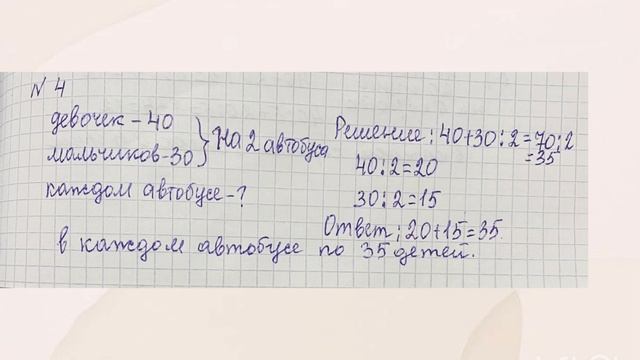 N 4
девочек - 40
мальчиков - 30 } На 2 автобуса
каждом автобусе - ?
Решение: 40+30:2=70:2
=35
40:2=20
30:2=15
Ответ: 20+15=35
в каждом автобусе по 35 детей.